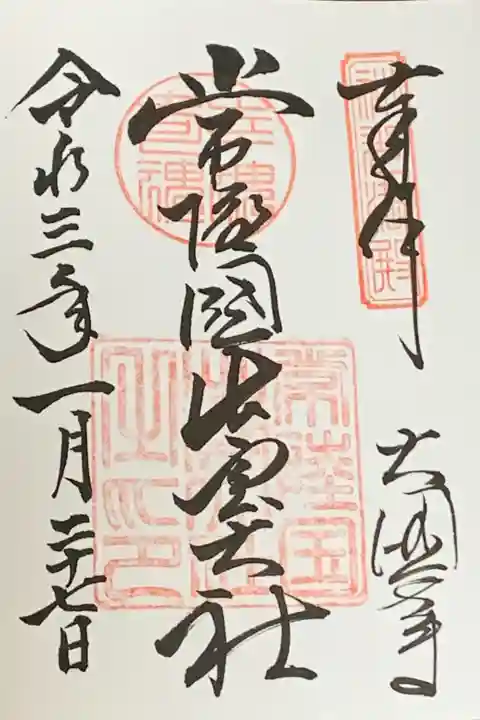 奉拝
常陸國出雲大社
令和三年一月二十七日
常陸国
出雲大社
之印